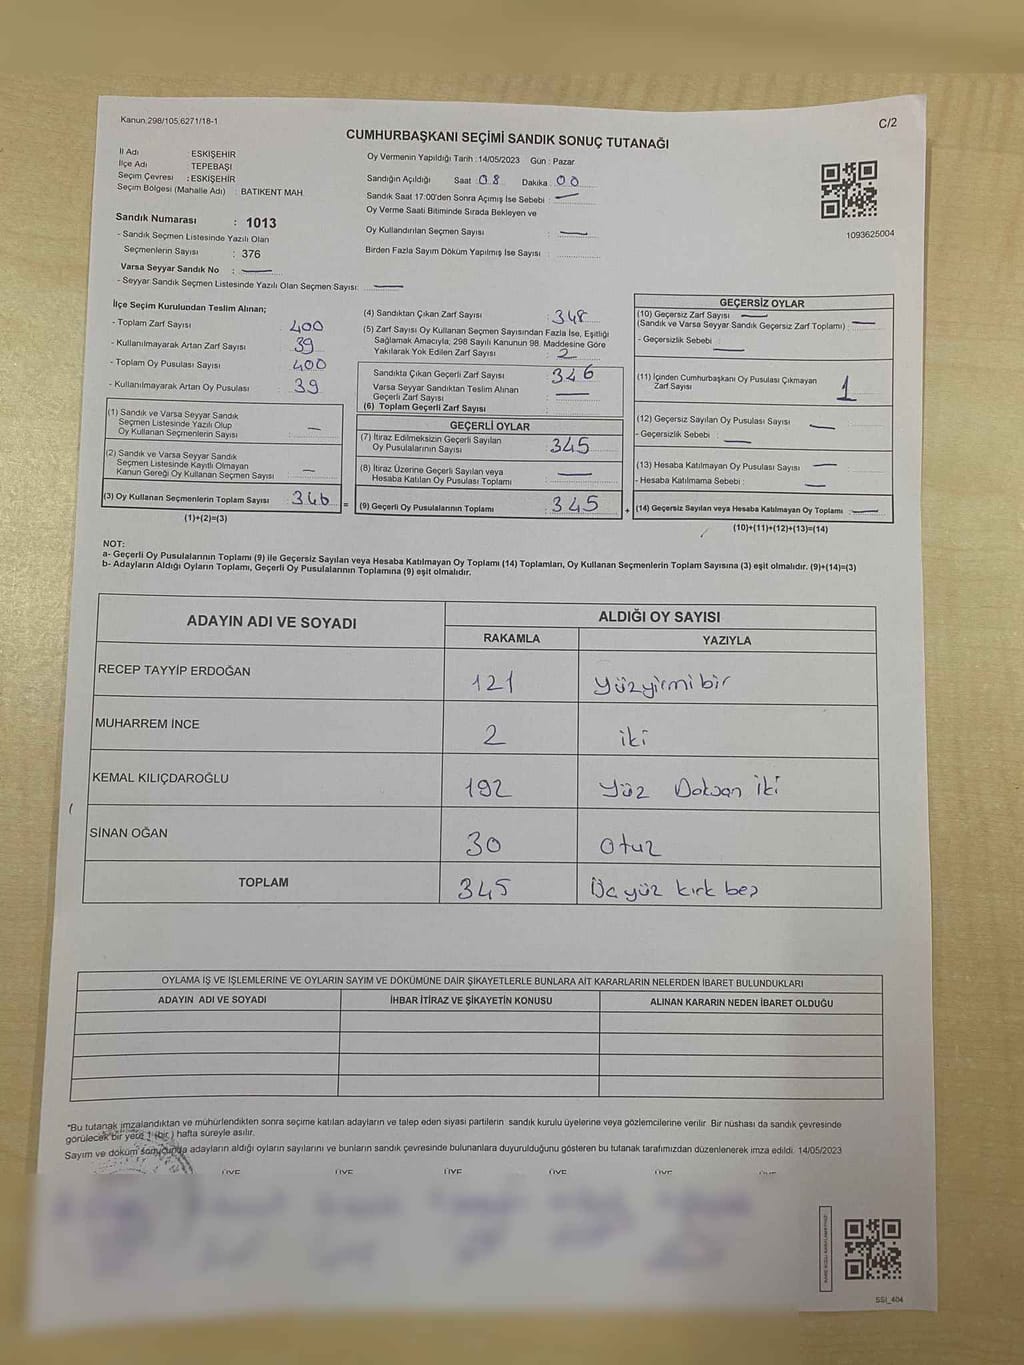 Kanun.298/105,6271/18-1
C/2
CUMHURBAŞKANI SEÇİMİ SANDIK SONUÇ TUTANAĞI
İl Adı : ESKİŞEHİR
İlçe Adı : TEPEBAŞI
Seçim Çevresi : ESKİŞEHİR
Seçim Bölgesi (Mahalle Adı) : BATIKENT MAH.
Sandık Numarası : 1013
- Sandık Seçmen Listesinde Yazılı Olan
Seçmenlerin Sayısı : 376
Varsa Seyyar Sandık No : —
- Seyyar Sandık Seçmen Listesinde Yazılı Olan Seçmen Sayısı: —
Oy Vermenin Yapıldığı Tarih : 14/05/2023 Gün : Pazar
Sandığın Açıldığı Saat 08 Dakika 00
Sandık Saat 17:00'den Sonra Açımış İse Sebebi : —
Oy Verme Saati Bitiminde Sırada Bekleyen ve
Oy Kullandırılan Seçmen Sayısı : —
Birden Fazla Sayım Döküm Yapılmış İse Sayısı :
1093625004
İlçe Seçim Kurulundan Teslim Alınan;
- Toplam Zarf Sayısı : 400
- Kullanılmayarak Artan Zarf Sayısı : 39
- Toplam Oy Pusulası Sayısı : 400
- Kullanılmayarak Artan Oy Pusulası : 39
(1) Sandık ve Varsa Seyyar Sandık
Seçmen Listesinde Yazılı Olup
Oy Kullanan Seçmenlerin Sayısı : —
(2) Sandık ve Varsa Seyyar Sandık
Seçmen Listesinde Kayıtlı Olmayan
Kanun Gereği Oy Kullanan Seçmen Sayısı : —
(3) Oy Kullanan Seçmenlerin Toplam Sayısı : 346 =
(1)+(2)=(3)
(4) Sandıktan Çıkan Zarf Sayısı : 348
(5) Zarf Sayısı Oy Kullanan Seçmen Sayısından Fazla İse, Eşitliği
Sağlamak Amacıyla, 298 Sayılı Kanunun 98. Maddesine Göre
Yakılarak Yok Edilen Zarf Sayısı : 2
Sandıkta Çıkan Geçerli Zarf Sayısı : 346
Varsa Seyyar Sandıktan Teslim Alınan
Geçerli Zarf Sayısı : —
(6) Toplam Geçerli Zarf Sayısı :
GEÇERLİ OYLAR
(7) İtiraz Edilmeksizin Geçerli Sayılan
Oy Pusulalarının Sayısı : 345
(8) İtiraz Üzerine Geçerli Sayılan veya
Hesaba Katılan Oy Pusulası Toplamı : —
(9) Geçerli Oy Pusulalarının Toplamı : 345 +
GEÇERSİZ OYLAR
(10) Geçersiz Zarf Sayısı —
(Sandık ve Varsa Seyyar Sandık Geçersiz Zarf Toplamı) : —
- Geçersizlik Sebebi : —
(11) İçinden Cumhurbaşkanı Oy Pusulası Çıkmayan
Zarf Sayısı : 1
(12) Geçersiz Sayılan Oy Pusulası Sayısı : —
- Geçersizlik Sebebi : —
(13) Hesaba Katılmayan Oy Pusulası Sayısı : —
- Hesaba Katılmama Sebebi : —
(14) Geçersiz Sayılan veya Hesaba Katılmayan Oy Toplamı : —
(10)+(11)+(12)+(13)=(14)
NOT:
a- Geçerli Oy Pusulalarının Toplamı (9) ile Geçersiz Sayılan veya Hesaba Katılmayan Oy Toplamı (14) Toplamları, Oy Kullanan Seçmenlerin Toplam Sayısına (3) eşit olmalıdır. (9)+(14)=(3)
b- Adayların Aldığı Oyların Toplamı, Geçerli Oy Pusulalarının Toplamına (9) eşit olmalıdır.
ADAYIN ADI VE SOYADI ALDIĞI OY SAYISI
RAKAMLA YAZIYLA
RECEP TAYYİP ERDOĞAN 121 Yüzyirmi bir
MUHARREM İNCE 2 iki
KEMAL KILIÇDAROĞLU 192 Yüz Doksan İki
SİNAN OĞAN 30 Otuz
TOPLAM 345 Üç yüz kırk beş
OYLAMA İŞ VE İŞLEMLERİNE VE OYLARIN SAYIM VE DÖKÜMÜNE DAİR ŞİKAYETLERLE BUNLARA AİT KARARLARIN NELERDEN İBARET BULUNDUKLARI
ADAYIN ADI VE SOYADI İHBAR İTİRAZ VE ŞİKAYETİN KONUSU ALINAN KARARIN NEDEN İBARET OLDUĞU
"Bu tutanak imzalandıktan ve mühürlendikten sonra seçime katılan adayların ve talep eden siyasi partilerin sandık kurulu üyelerine veya gözlemcilerine verilir. Bir nüshası da sandık çevresinde
görülecek bir yere 1 (bir) hafta süreyle asılır.
Sayım ve döküm sonucunda adayların aldığı oyların sayılarını ve bunların sandık çevresinde bulunanlara duyurulduğunu gösteren bu tutanak tarafımızdan düzenlenerek imza edildi. 14/05/2023
ÜYE ÜYE ÜYE ÜYE ÜYE ÜYE
SSİ_404